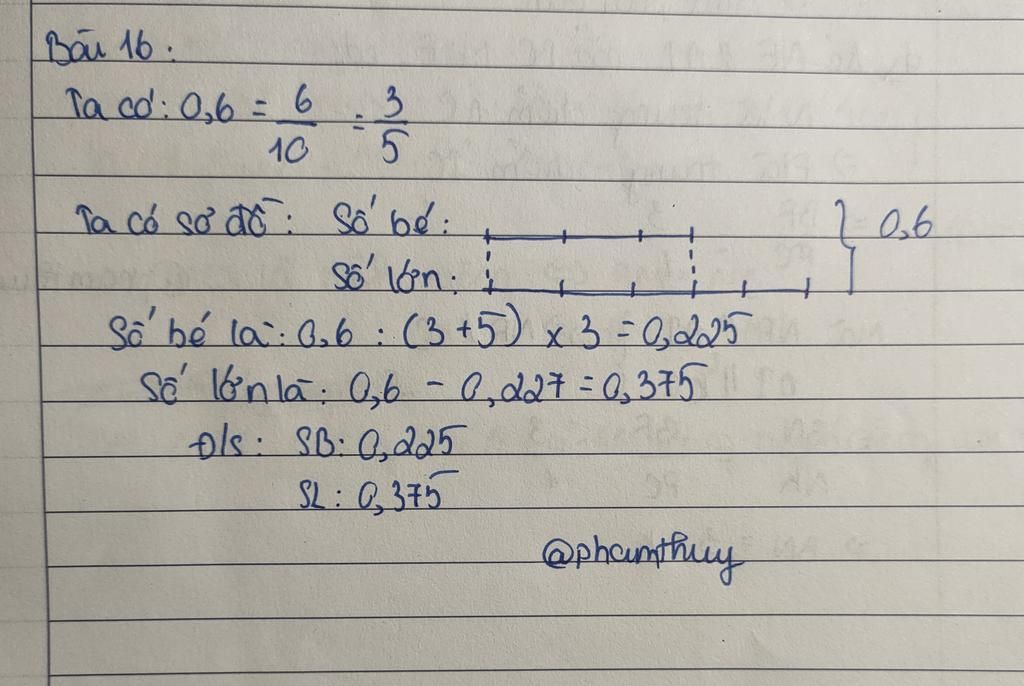 Bài 16:
Ta có: 0,6 = 6/10 = 3/5
Ta có sơ đồ: Số bé: } 0,6
Số lớn:
Số bé là: 0,6 : (3+5) x 3 = 0,225
Số lớn là: 0,6 - 0,227 = 0,375
Đ/s: SB: 0,225
SL: 0,375
@phamthuy